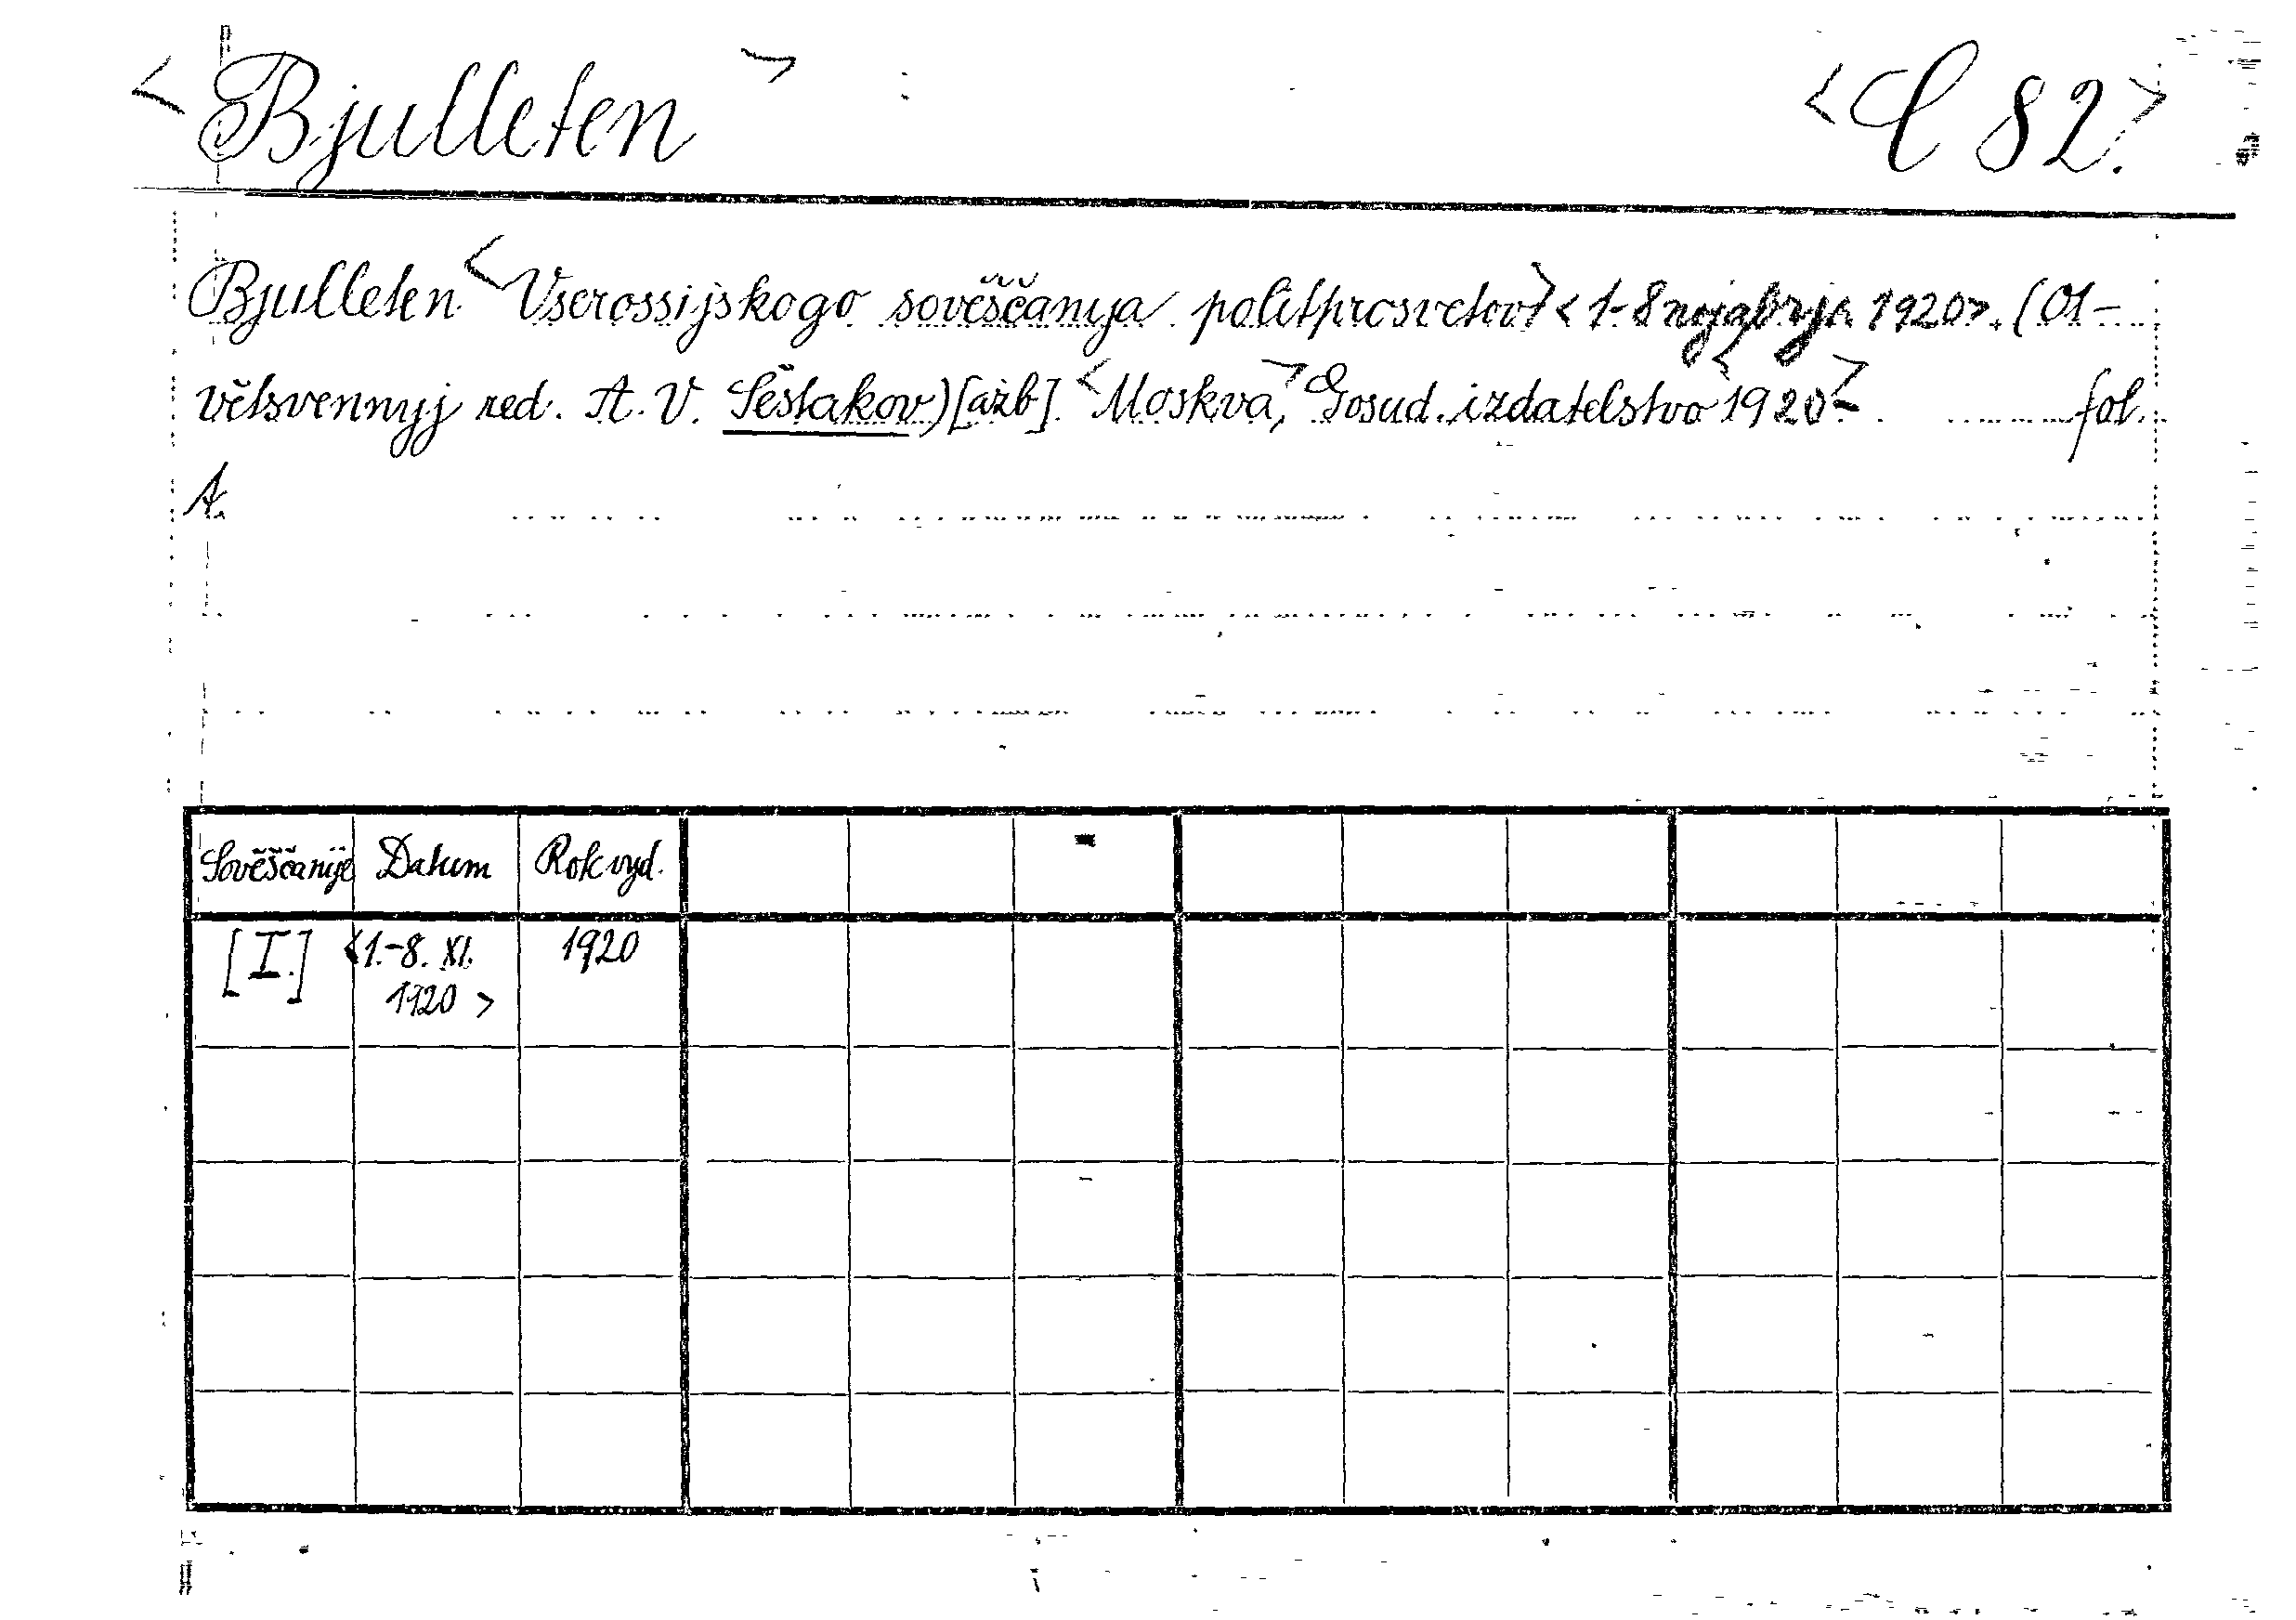 <Bjulleten> <C 82.>
Bjulleten <Vserossijskogo sověščanija politprosvetov> <1-8 nojabrja 1920>. (Ot-
větsvennyj red. A. V. Šestakov) [ažb]. <Moskva,> Gosud. izdatelstvo <1920>. fol.
A.
Sověščanije Datum Rok vyd.
[I.] <1.-8. XI. 1920
1920>